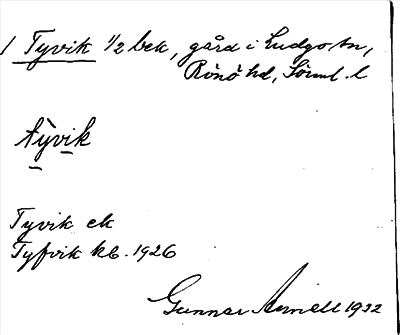 1 Tyvik 1/2 bek, gård i Ludgo sn,
Rönö hd, Sörml. l
tỳvik
Tyvik ek
Tyfvik kb. 1926
Gunnar Arnell 1932